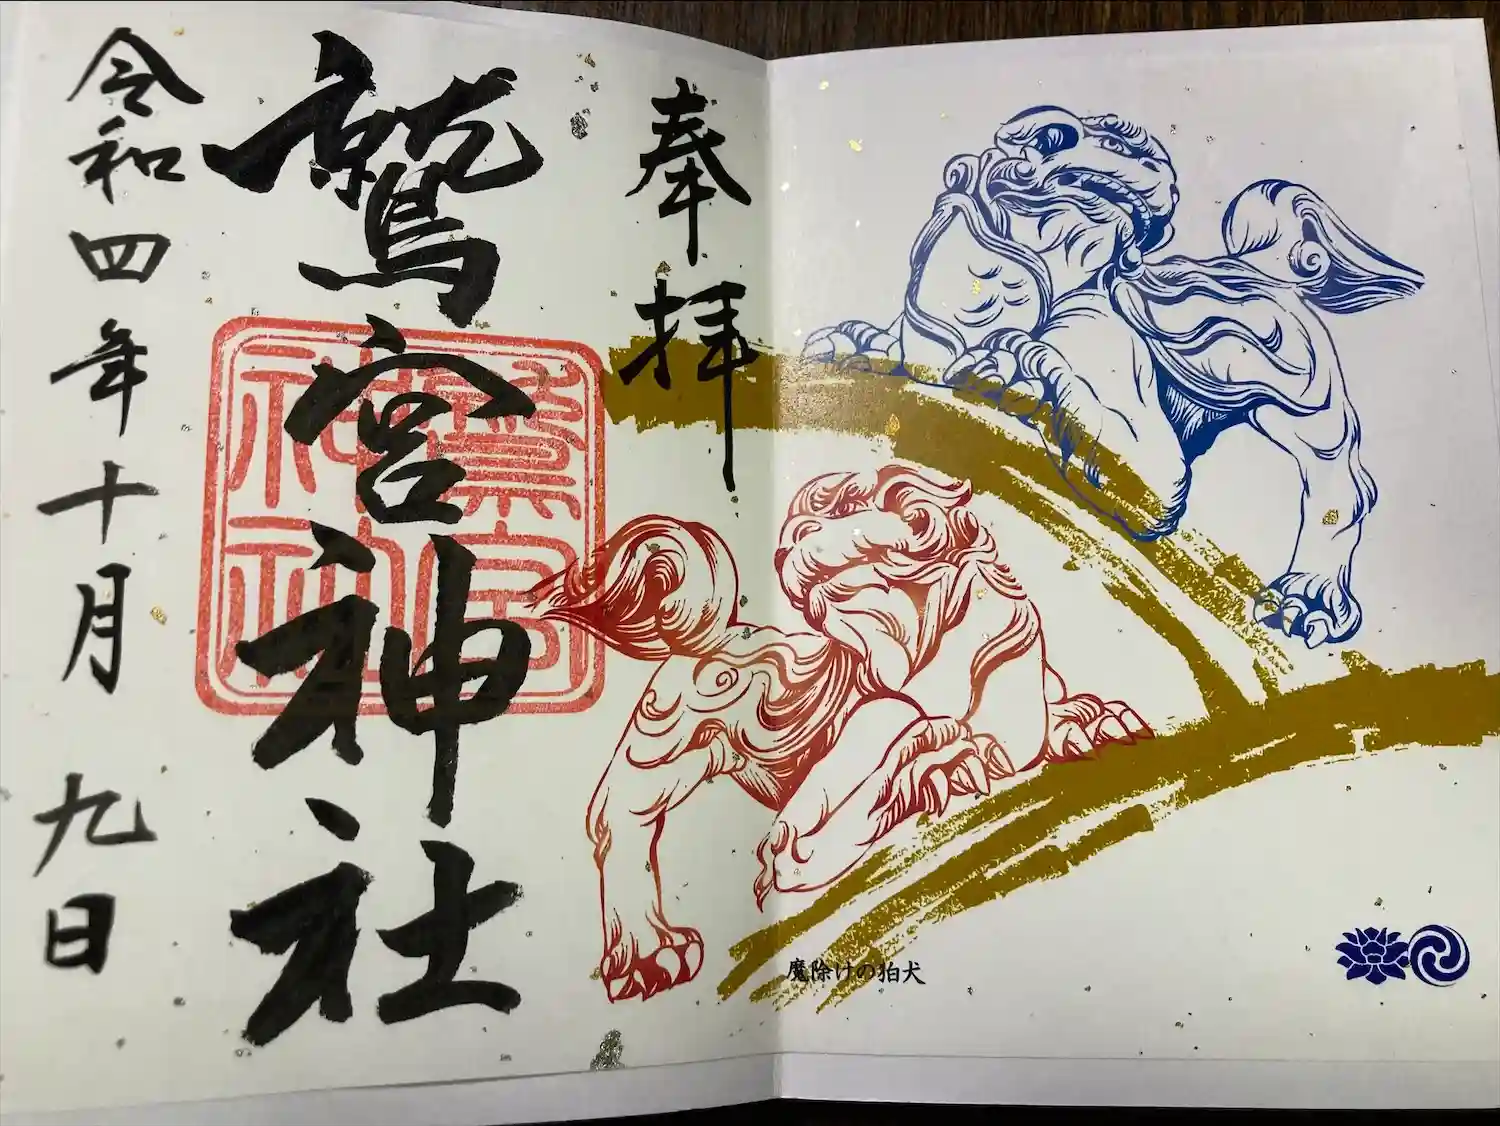 奉拝
鷲宮神社
鷲宮
神社
令和四年十月九日
魔除けの狛犬